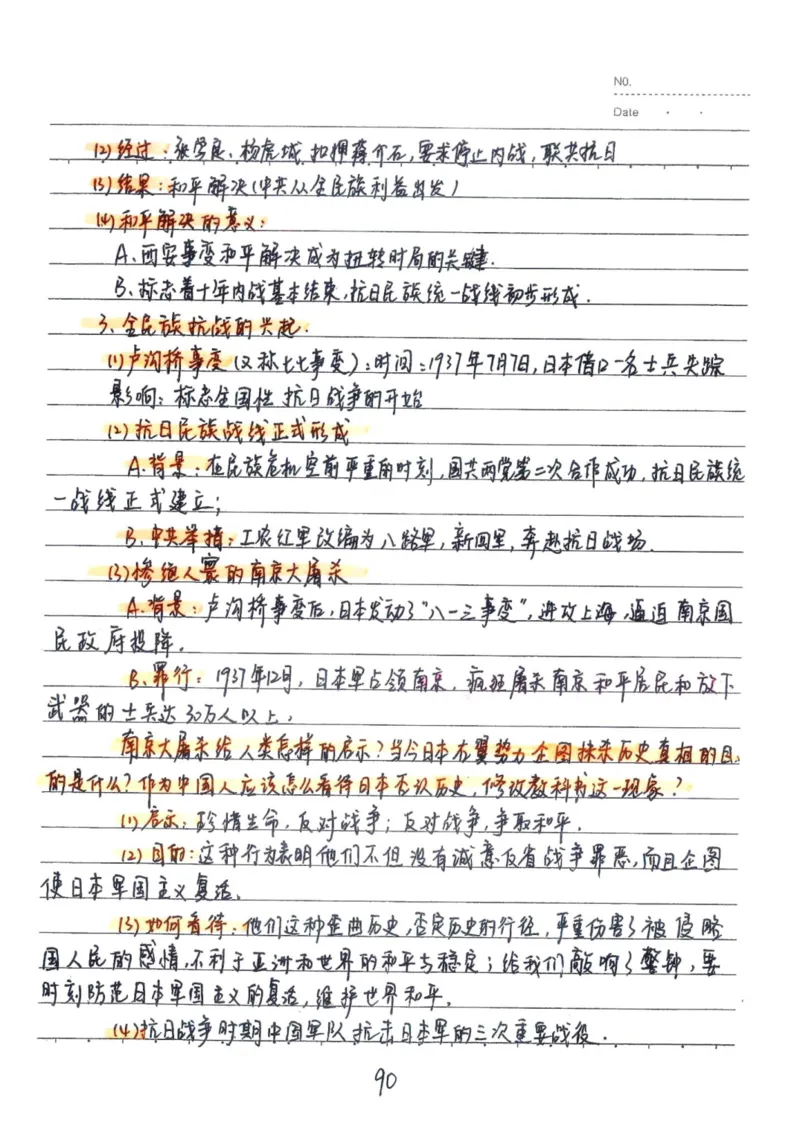 NO.
Date
(2)经过:张学良、杨虎城扣押蒋介石,要求停止内战,联共抗日
(3)结果:和平解决(中共从全民族利益出发)
(4)和平解决的意义:
A、西安事变和平解决成为扭转时局的关键.
B、标志着十年内战基本结束,抗日民族统一战线初步形成.
3、全民族抗战的兴起.
(1)卢沟桥事变(又称七七事变):时间:1937年7月7日,日本借口一名士兵失踪
影响:标志全国性抗日战争的开始
(2)抗日民族战线正式形成
A.背景:在民族危机空前严重的时刻,国共两党第二次合作成功,抗日民族统
一战线正式建立;
B、中共举措:工农红军改编为八路军,新四军,奔赴抗日战场.
(3)惨绝人寰的南京大屠杀
A.背景:卢沟桥事变后,日本发动了“八一三事变”,进攻上海,逼迫南京国
民政府投降.
B、罪行:1937年12月,日本军占领南京,疯狂屠杀南京和平居民和放下
武器的士兵达30万人以上.
南京大屠杀给人类怎样的启示?当今日本右翼势力企图抹杀历史真相的目
的是什么?作为中国人应该怎么看待日本否认历史,修改教科书这一现象?
(1)启示:珍惜生命,反对战争;反对战争,争取和平.
(2)目的:这种行为表明他们不但没有诚意反省战争罪恶,而且企图
使日本军国主义复活.
(3)如何看待:他们这种歪曲历史,否定历史的行径,严重伤害了被侵略
国人民的感情,不利于亚洲和世界的和平与稳定;给我们敲响了警钟,要
时刻防范日本军国主义的复活,维护世界和平.
(4)抗日战争时期中国军队抗击日本军的三次重要战役.
90